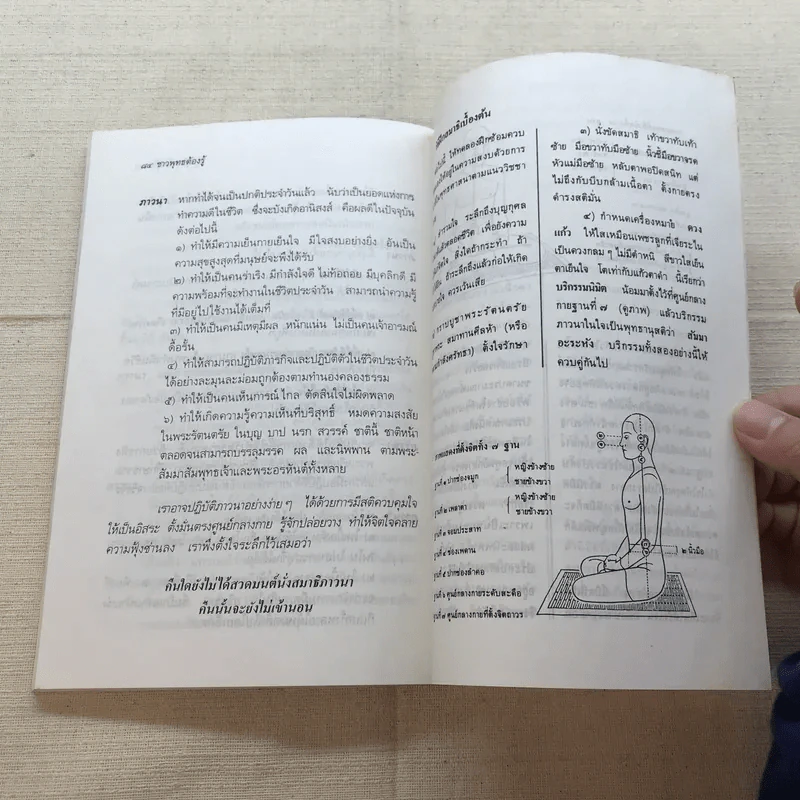 ๘๔ ชาวพุทธต้องรู้
ภาวนา หากทำได้จนเป็นปกติประจำวันแล้ว นับว่าเป็นยอดแห่งการ
ทำความดีในชีวิต ซึ่งจะบังเกิดอานิสงส์ คือผลดีในปัจจุบัน
ดังต่อไปนี้
๑) ทำให้มีความเย็นกายเย็นใจ มีใจสงบอย่างยิ่ง อันเป็น
ความสุขสูงสุดที่มนุษย์จะพึงได้รับ
๒) ทำให้เป็นคนร่าเริง มีกำลังใจดี ไม่ท้อถอย มีบุคลิกดี มี
ความพร้อมที่จะทำงานในชีวิตประจำวัน สามารถนำความรู้
ที่มีอยู่ไปใช้งานได้เต็มที่
๓) ทำให้เป็นคนมีเหตุมีผล หนักแน่น ไม่เป็นคนเจ้าอารมณ์
ดื้อรั้น
๔) ทำให้สามารถปฏิบัติภารกิจและปฏิบัติตัวในชีวิตประจำวัน
ได้อย่างละมุนละม่อมถูกต้องตามทำนองคลองธรรม
๕) ทำให้เป็นคนเห็นการณ์ไกล ตัดสินใจไม่ผิดพลาด
๖) ทำให้เกิดความรู้ความเห็นที่บริสุทธิ์ หมดความสงสัย
ในพระรัตนตรัย ในบุญ บาป นรก สวรรค์ ชาตินี้ ชาติหน้า
ตลอดจนสามารถบรรลุมรรค ผล และนิพพาน ตามพระ-
สัมมาสัมพุทธเจ้าและพระอรหันต์ทั้งหลาย
เราอาจปฏิบัติภาวนาอย่างง่าย ๆ ได้ด้วยการมีสติควบคุมใจ
ให้เป็นอิสระ ตั้งมั่นตรงศูนย์กลางกาย รู้จักปล่อยวาง ทำให้จิตใจคลาย
ความฟุ้งซ่านลง เราพึงตั้งใจระลึกไว้เสมอว่า
คืนใดยังไม่ได้สวดมนต์นั่งสมาธิภาวนา
คืนนั้นจะยังไม่เข้านอน
ฝึกสมาธิเบื้องต้น
ให้ทดลองฝึกซ้อมควบ
ให้อยู่ในความสงบด้วยการ
ระลึกถึงบุญกุศล
ตลอดชีวิต เพื่อยังความ
สิ่งใดถ้ากระทำ ถ้า
ระลึกถึงแล้วก่อให้เกิด
ควรเว้นเสีย
กราบบูชาพระรัตนตรัย
สมาทานศีลห้า (หรือ
ตั้งใจรักษา
๓) นั่งขัดสมาธิ เท้าขวาทับเท้า
ซ้าย มือขวาทับมือซ้าย นิ้วชี้มือขวาจรด
หัวแม่มือซ้าย หลับตาพอปิดสนิท แต่
ไม่ถึงกับบีบกล้ามเนื้อตา ตั้งกายตรง
ดำรงสติมั่น
๔) กำหนดเครื่องหมาย ดวง
แก้ว ให้ใสเหมือนเพชรลูกที่เจียระไน
เป็นดวงกลมๆ ไม่มีตำหนิ สีขาวใสเย็น
ตาเย็นใจ โตเท่ากับแก้วตาดำ นี้เรียกว่า
บริกรรมนิมิต น้อมมาตั้งไว้ที่ศูนย์กลาง
กายฐานที่ ๗ (ดูภาพ) แล้วบริกรรม
ภาวนาในใจเป็นพุทธานุสติว่า สัมมา
อะระหัง บริกรรมทั้งสองอย่างนี้ให้
ควบคู่กันไป
ภาพแสดงที่ตั้งจิตทั้ง ๗ ฐาน
ฐานที่ ๑ ปากช่องจมูก หญิงข้างซ้าย ชายข้างขวา
ฐานที่ ๒ เพลาตา หญิงข้างซ้าย ชายข้างขวา
ฐานที่ ๓ จอมประสาท
ฐานที่ ๔ ช่องเพดาน
ฐานที่ ๕ ปากช่องลำคอ
ฐานที่ ๖ ศูนย์กลางกายระดับสะดือ
ฐานที่ ๗ ศูนย์กลางกายที่ตั้งจิตถาวร
๒ นิ้วมือ